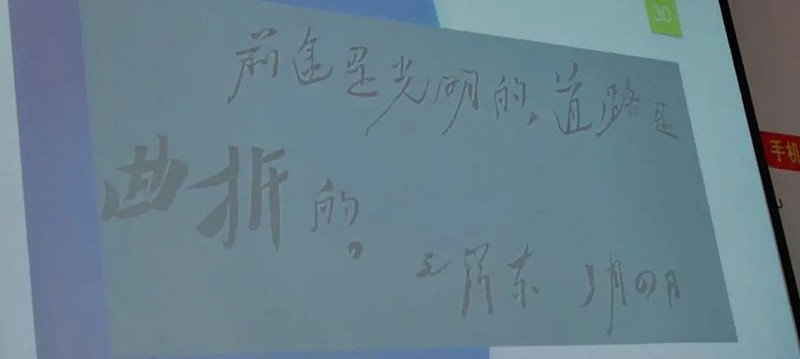 30
前途是光明的,道路是
曲折的,
毛泽东 1月四日
手机